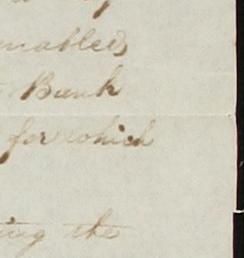 enables
Bank
for which
ing the